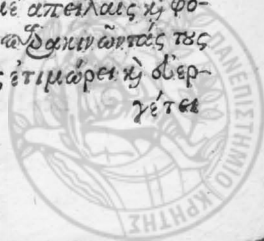 με ἀπειλαῖς κ̀ φο-
ρακινῶντάς τους
ς ἐτιμώρει κ̀ εὐερ-
γέτει
ΠΑΝΕΠΙΣΤΗΜΙΟ ΚΡΗΤΗΣ